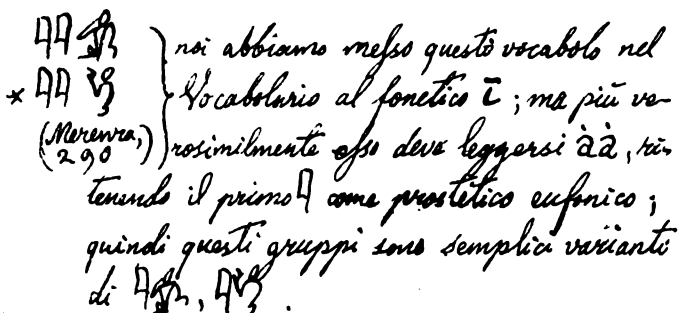 𓇋𓇋 noi abbiamo messo questo vocabolo nel
* 𓇋𓇋 Vocabolario al fonetico ī ; ma più ve-
(Merenra, 290) rosimilmente esso deve leggersi àà, ri-
tenendo il primo 𓇋 come prostetico eufonico ;
quindi questi gruppi sono semplici varianti
di 𓇋 , 𓇋 .